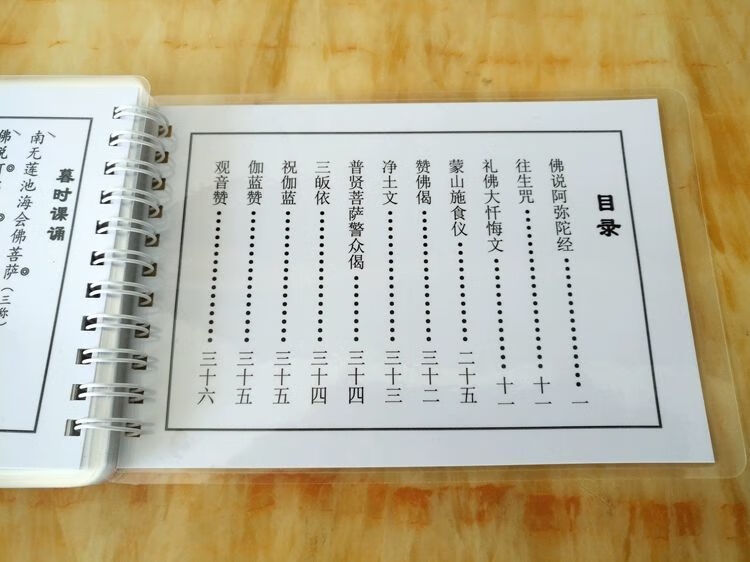 目录
佛说阿弥陀经………………一
往生咒………………十一
礼佛大忏悔文………………十一
蒙山施食仪………………二十五
赞佛偈………………三十二
净土文………………三十三
普贤菩萨警众偈………………三十四
三皈依………………三十四
祝伽蓝………………三十五
伽蓝赞………………三十五
观音赞………………三十六
暮时课诵
南无莲池海会佛菩萨（三称）
佛说阿